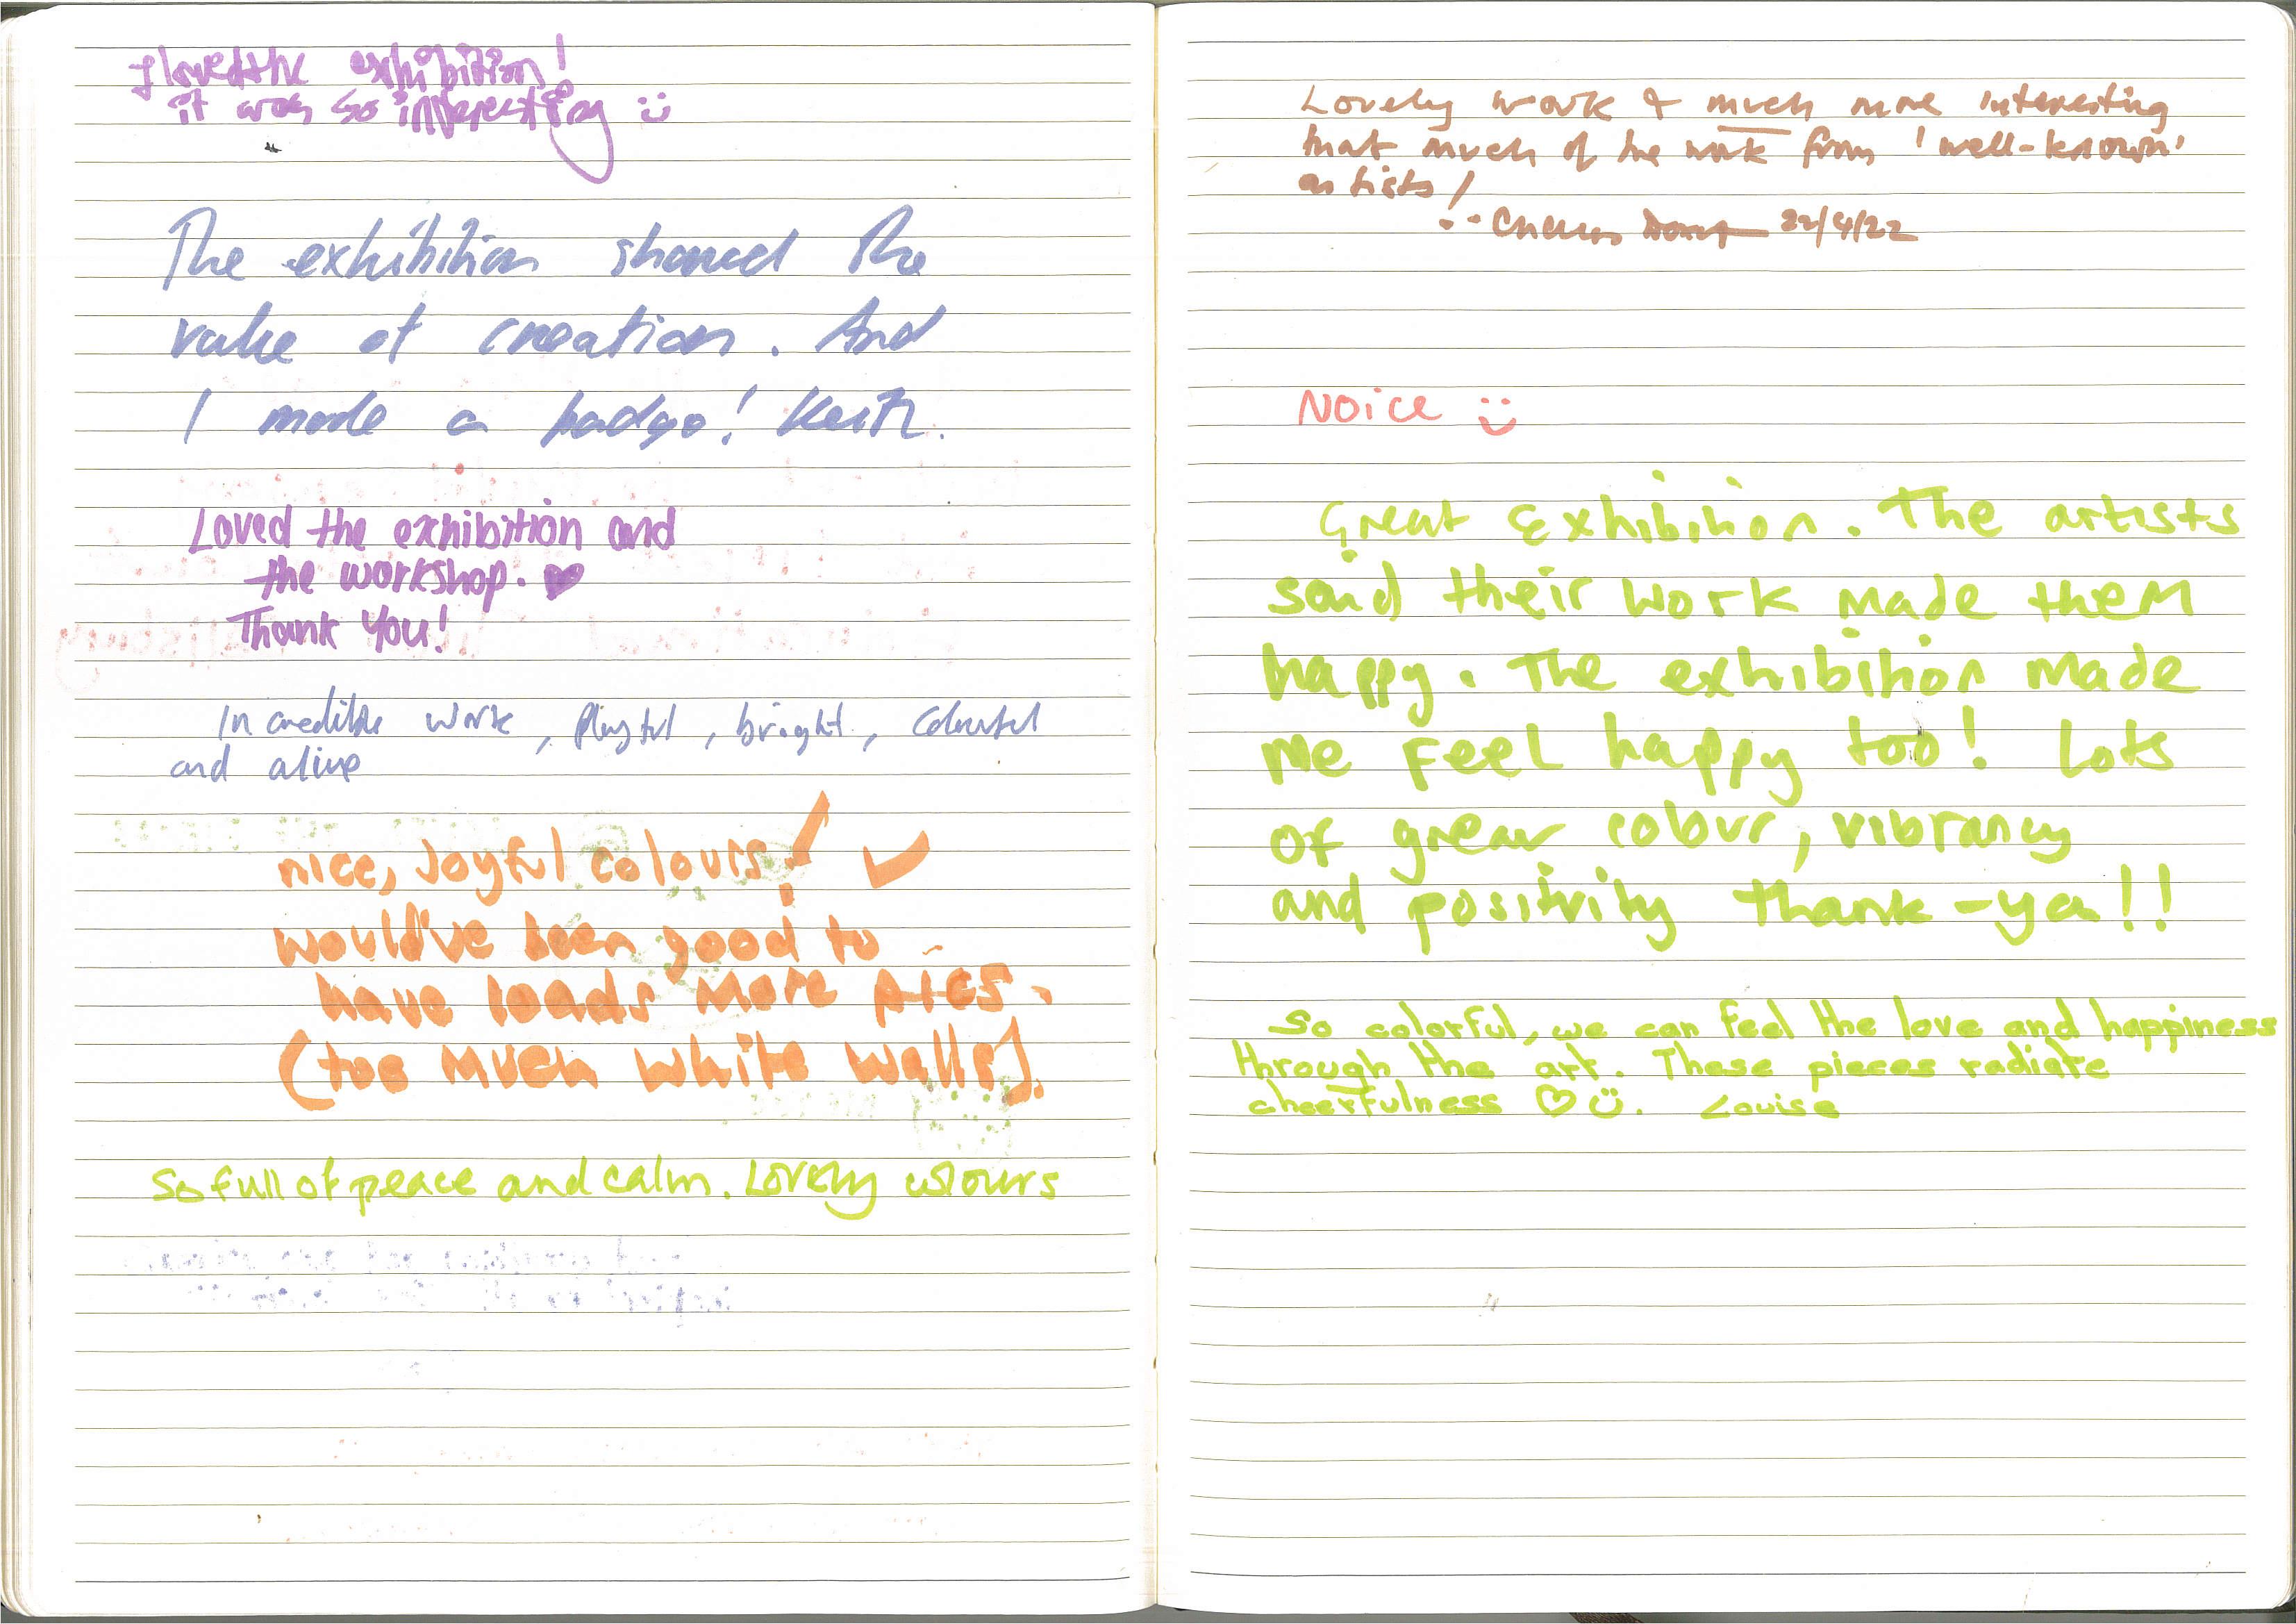 I loved the exhibition!
it was so interesting :)
The exhibition showed the
value of creation. And
I made a badge! Keith.
Loved the exhibition and
the workshop. ♥
Thank You!
Incredible work, playful, bright, colourful
and alive
nice, Joyful colours! ✓
would've been good to
have loads more pics.
(too much white walls).
So full of peace and calm. Lovely colours
Lovely work & much more interesting
that much of the work from 'well-known'
artists!
22/4/22
Noice :)
Great Exhibition. The artists
said their work made them
happy. The exhibition made
me feel happy too! Lots
of great colour, vibrancy
and positivity thank-ya!!
So colorful, we can feel the love and happiness
through the art. These pieces radiate
cheerfulness ♡ :). Louise